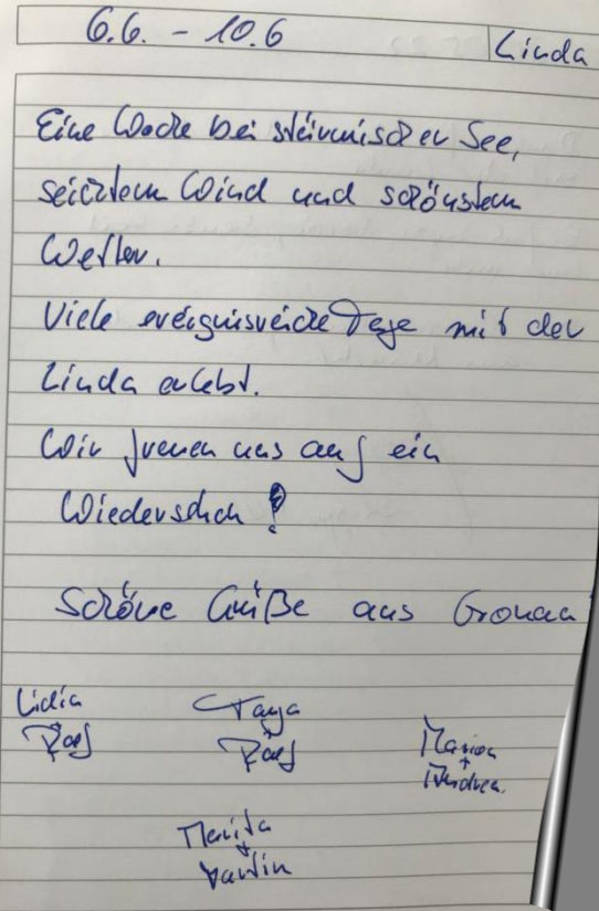 6.6. - 10.6
Linda
Eine Woche bei stürmischer See,
seichtem Wind und schönstem
Wetter.
Viele ereignisreiche Tage mit der
Linda erlebt.
Wir freuen uns auf ein
Wiedersehen!
Schöne Grüße aus Gronau
Lidia
Ralf
Tanja
+
Ralf
Marion
+
Andrea
Marita
+
Martin